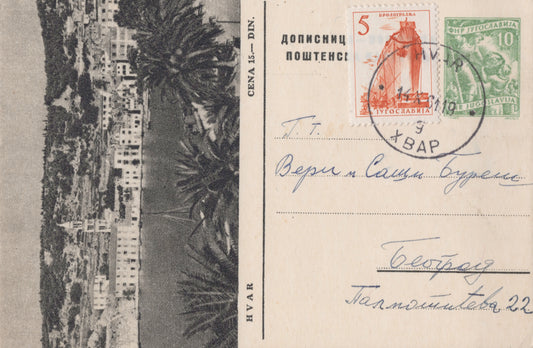 HVAR
CENA 15.— DIN.
ДОПИСНИЦ
ПОШТЕНС
5
БРОДОГРАДЊА
ЈУГОСЛАВИЈА
ФНР ЈУГОСЛАВИЈА
10
FNR JUGOSLAVIJA
HVAR
61.19
9
ХВАР
П. т.
Вери и Саши Буреш
Београд
Палмотићева 22